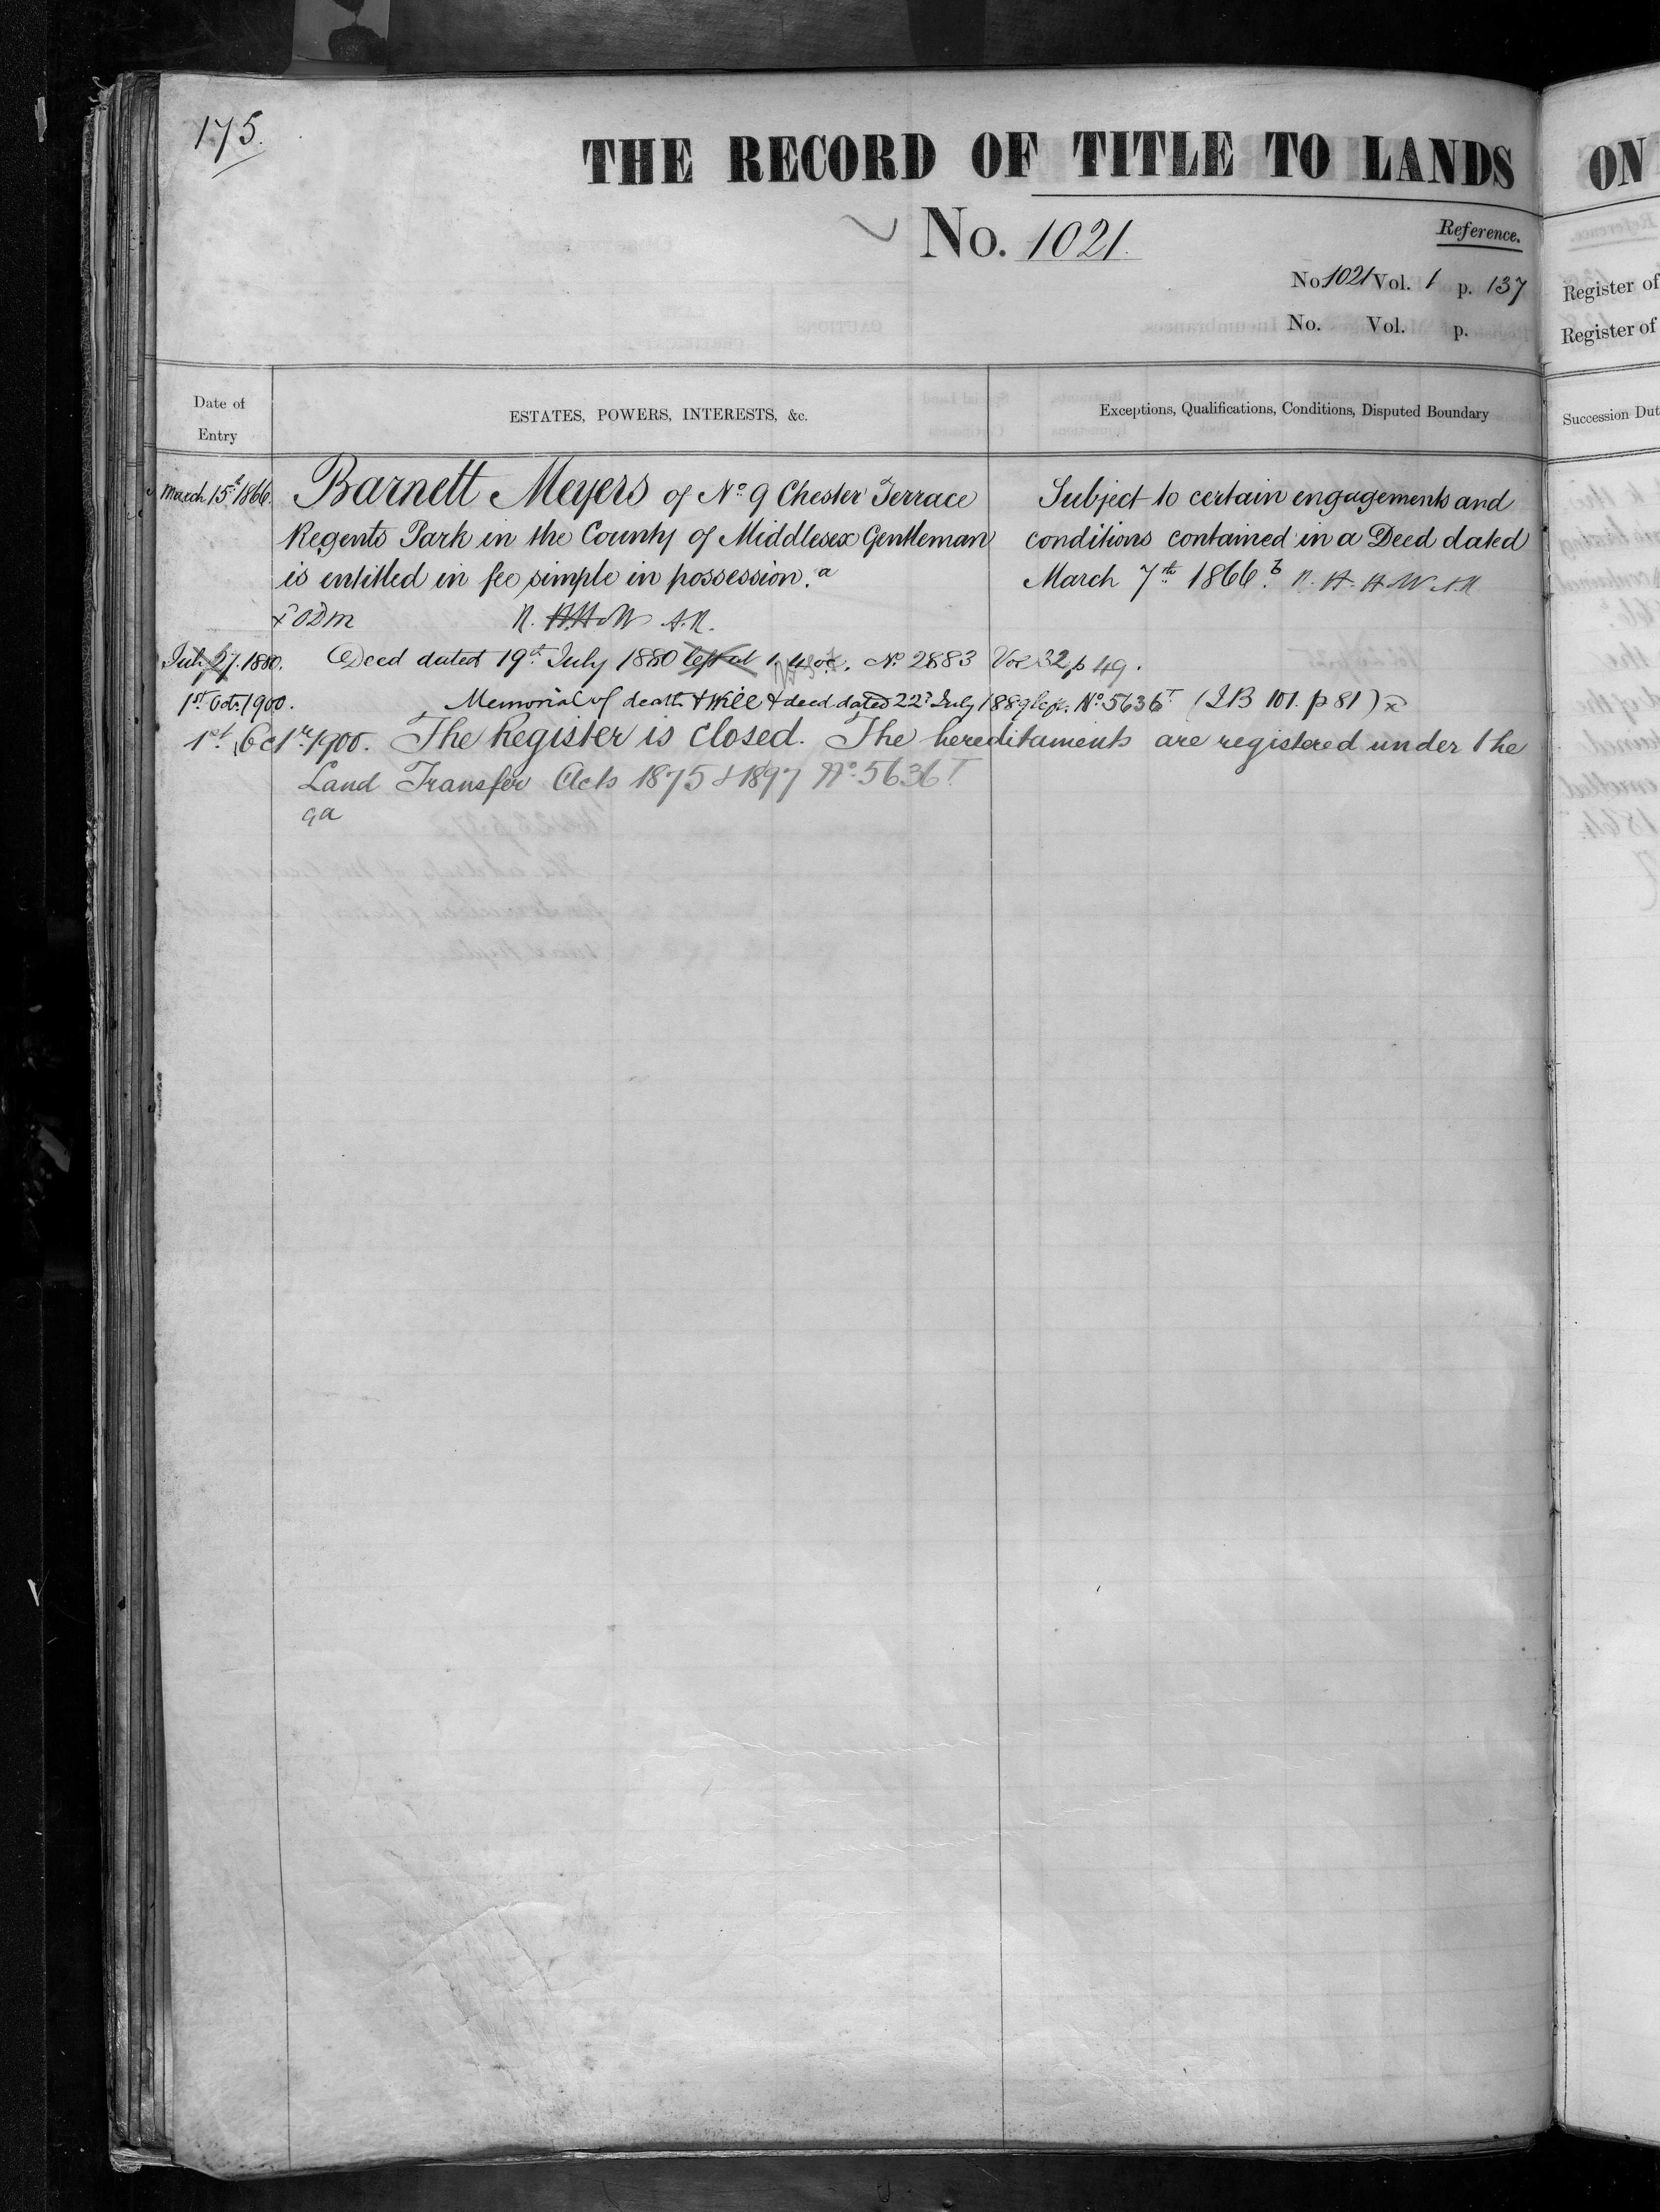 175.
THE RECORD OF TITLE TO LANDS
ON
No. 1021.
Reference.
No 1021 Vol. 1 p. 137
Register of
No. Vol. p.
Register of
Date of
Entry
ESTATES, POWERS, INTERESTS, &c.
Exceptions, Qualifications, Conditions, Disputed Boundary
Succession Dut
March 15th 1866. Barnett Meyers of No 9 Chester Terrace
Regents Park in the County of Middlesex Gentleman
is entitled in fee simple in possession. a
Subject to certain engagements and
conditions contained in a Deed dated
March 7th 1866. b
July 27. 1880. Deed dated 19th July 1880 left at No 2883 Vol 32 p 49.
1st Oct. 1900. Memorial of death & Will & deed dated 22d July 1889 left. No 5636T (IB 101. p 81)
1st Octr 1900. The Register is closed. The hereditaments are registered under the
Land Transfer Acts 1875 & 1897 No 5636T.